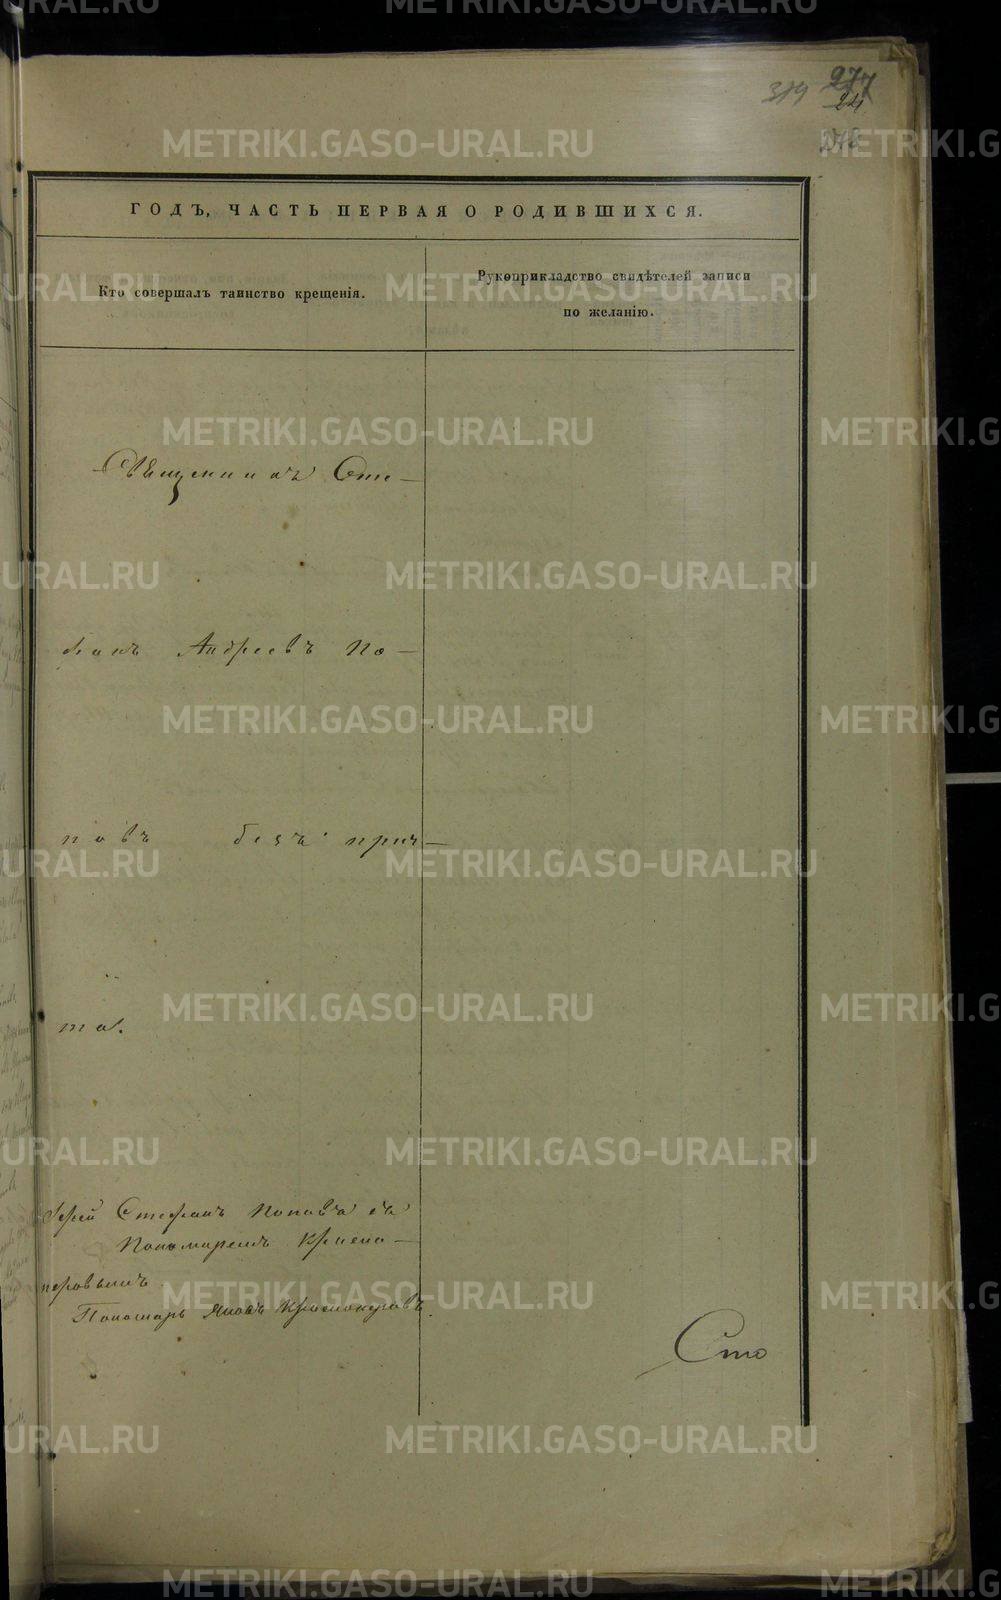 319 277
24
ГОДЪ, ЧАСТЬ ПЕРВАЯ О РОДИВШИХСЯ.
Кто совершалъ таинство крещенія.
Рукоприкладство свидѣтелей записи
по желанію.
Священникъ Сте-
фанъ Андреевъ По-
повъ безъ прич-
та.
Іерей Стефанъ Поповъ съ
Пономаремъ
Пономарь Яковъ
Сто
METRIKI.GASO-URAL.RU